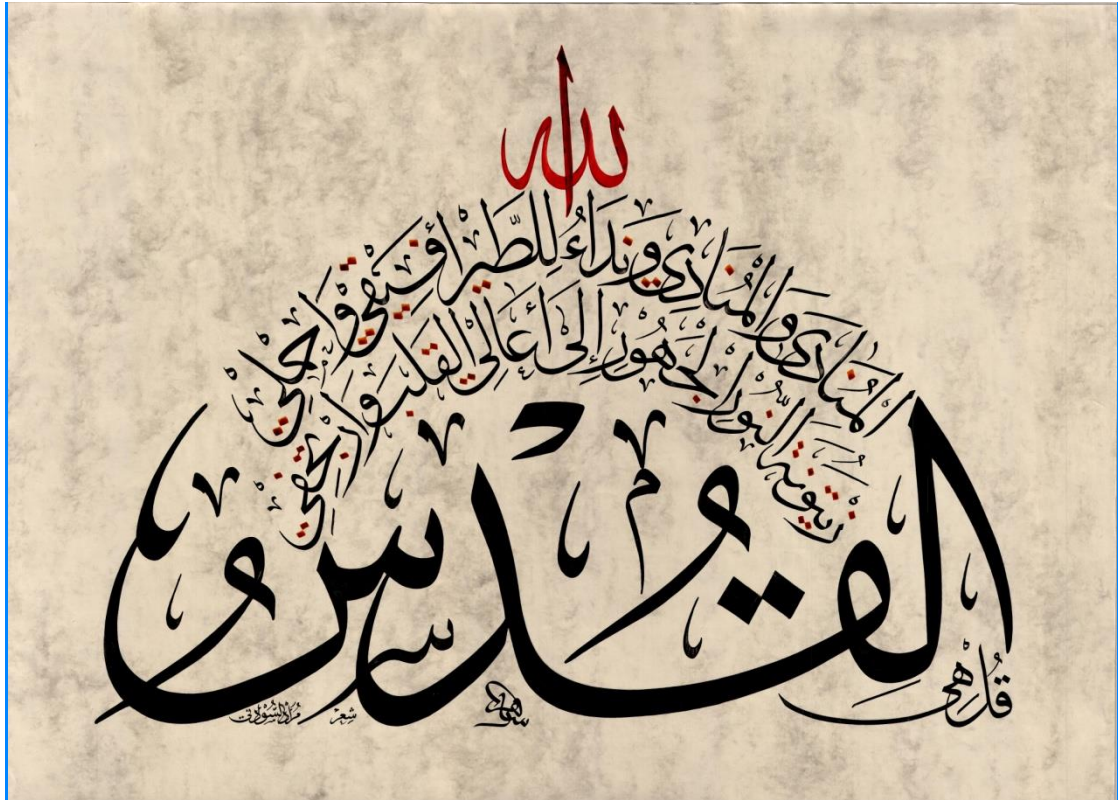 لله
المُنادى والمُنادي ونداءُ للطّير أفيقي واحملي
زيتونة النّور الجهور إلى أعالي القلب وارتجفي
القُدسُ
قُل هي
شعر مراد السوداني